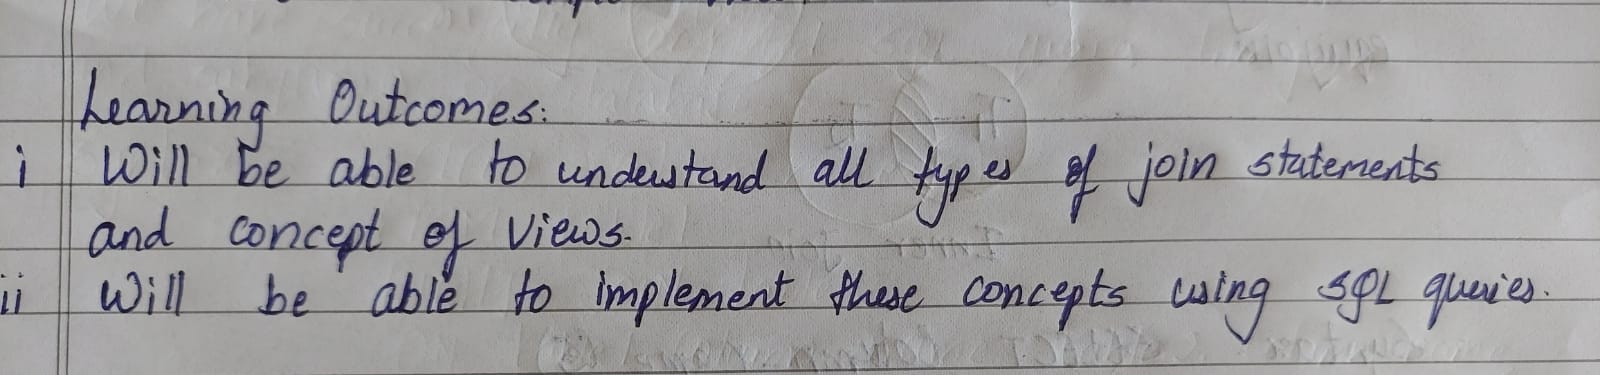 Learning Outcomes:
i Will be able to understand all types of join statements
and concept of Views.
ii Will be able to implement these concepts using SQL queries.